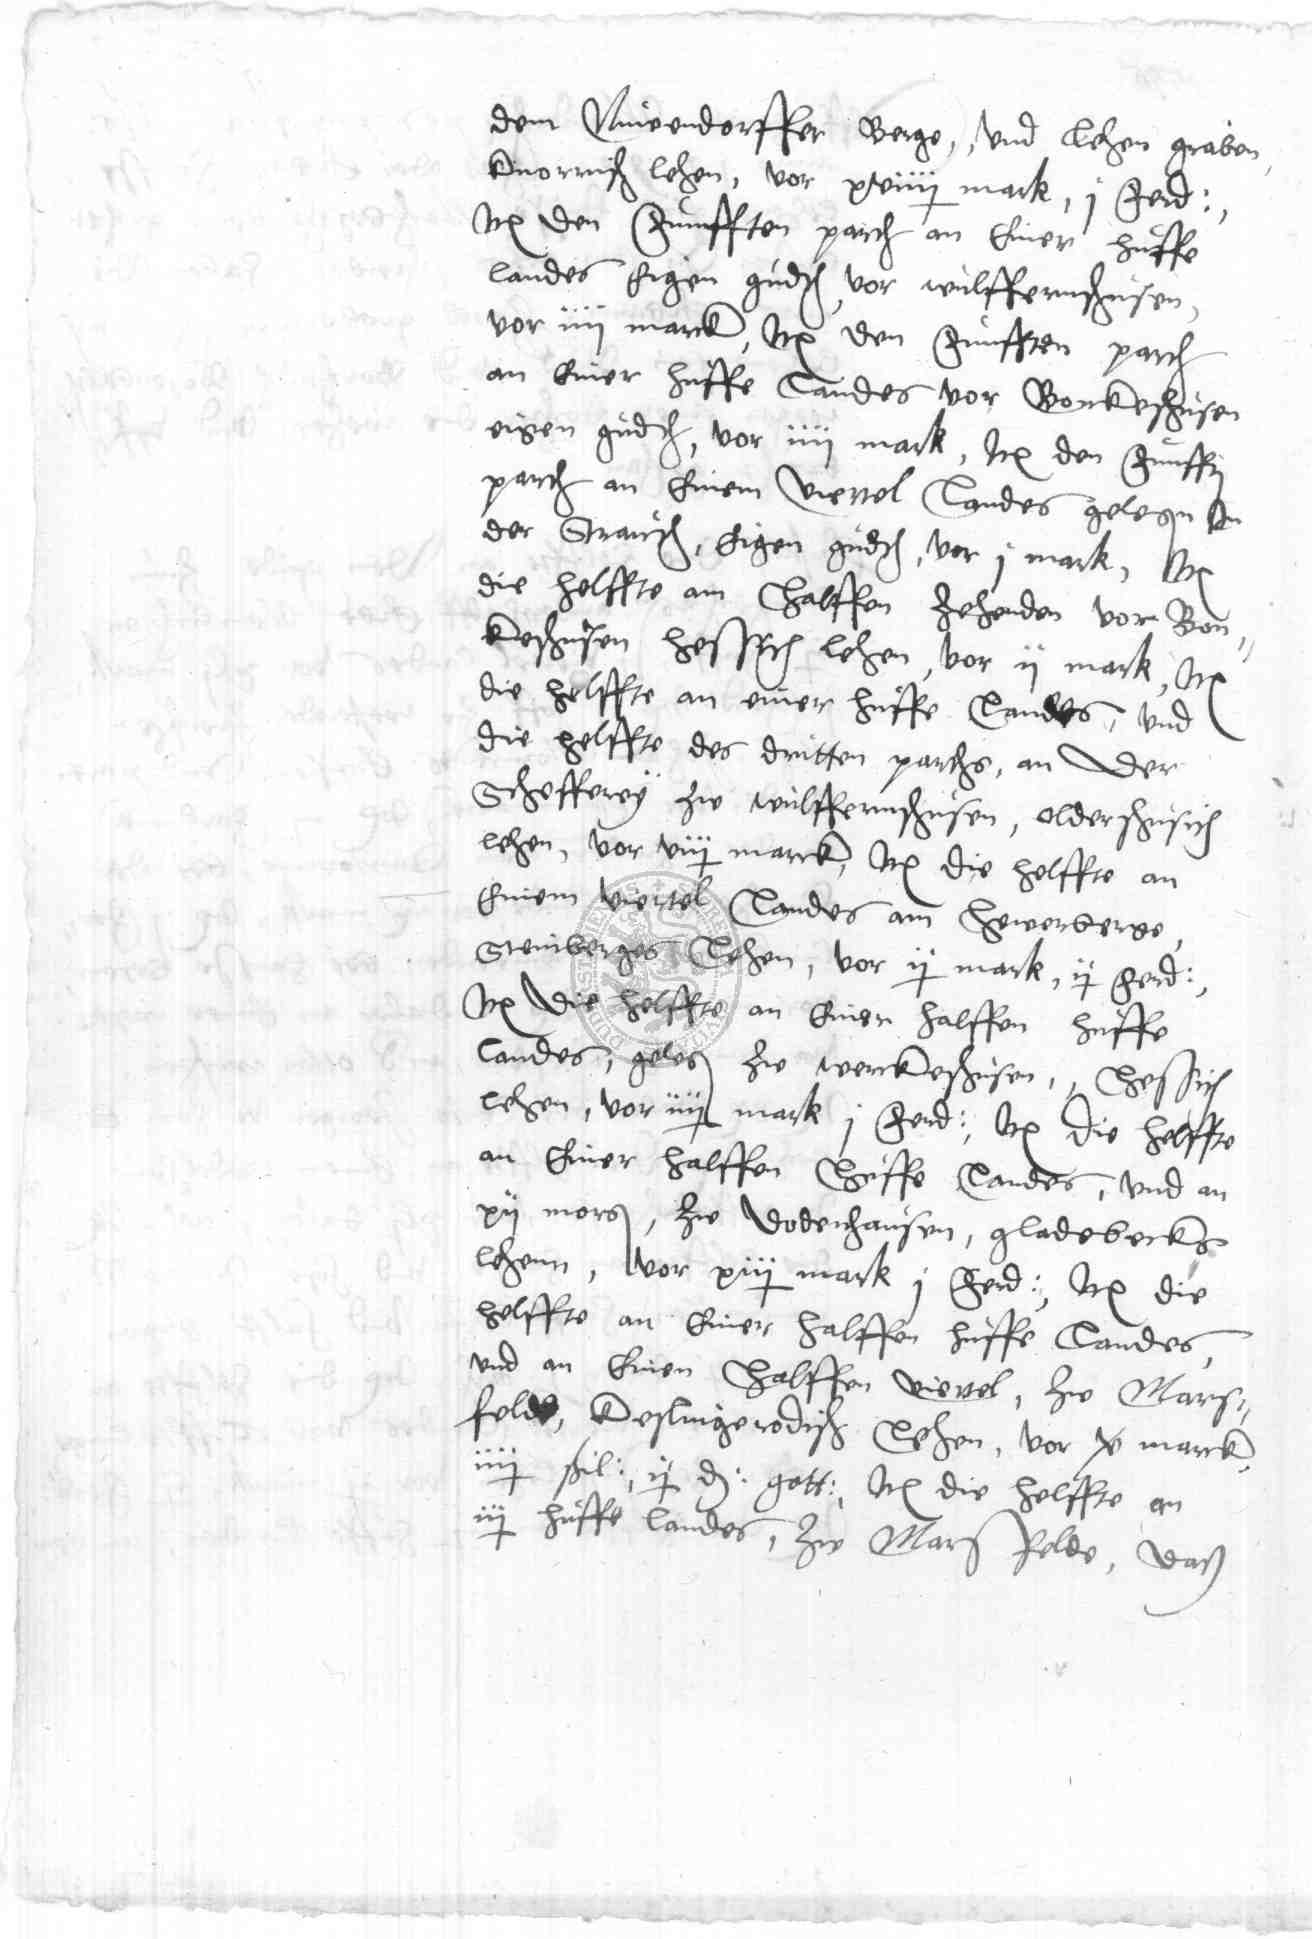 dem Nuwendorffer Berge, und lehen graben,
Knorrisch lehen, vor xviiij mark, j ferd:,
Itē den funfften parth an Einer huffe
landes Eigen gudth, vor wulffernßhusen,
vor iiij marck, Itē den funfften parth
an Einer huffe Landes vor Bonkeshusen
eigen gudth, vor iiij mark, Itē den funfftē
parth an Einem viertel Landes gelegen In
der Strauth, Eigen gudth, vor j mark, Itē
die helffte am halffen Zehenden vor Bon„
keshusen hessisch lehen, vor ij mark, Itē
die helffte an einer huffe Landes, und
die helffte des dritten parths, an der
Schefferey zw wulffernßhusen, oldershusisch
lehen, vor viij marck, Itē die helffte an
Einem viertel Landes am Hewerberge,
Steinberges Lehen, vor ij mark, ij ferd:,
Itē die helffte an Einer halffen huffe
Landes, geleg zw werckeshusen, Hessisch
lehen, vor iiij mark j ferd:, Itē die helffte
an Einer halffen Huffe Landes, und an
xij morg, zw Dodenhausen, gladebecks
lehenn, vor xiij mark j ferd:, Itē die
helffte an Einer halffen huffe Landes,
und an Einen halffen viertel, zw Mars„
felde, Keslingerodisch Lehen, vor x marck
iiij ßil:, ij d: gott:, Itē die helffte an
iij huffe landes, zw Marsfelde, daß